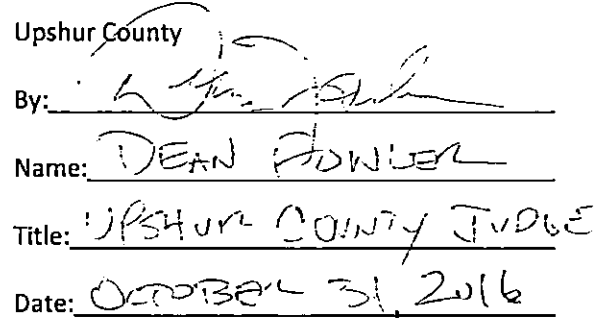 Upshur County
By:
Name: DEAN FOWLER
Title: UPSHUR COUNTY JUDGE
Date: OCTOBER 31, 2016